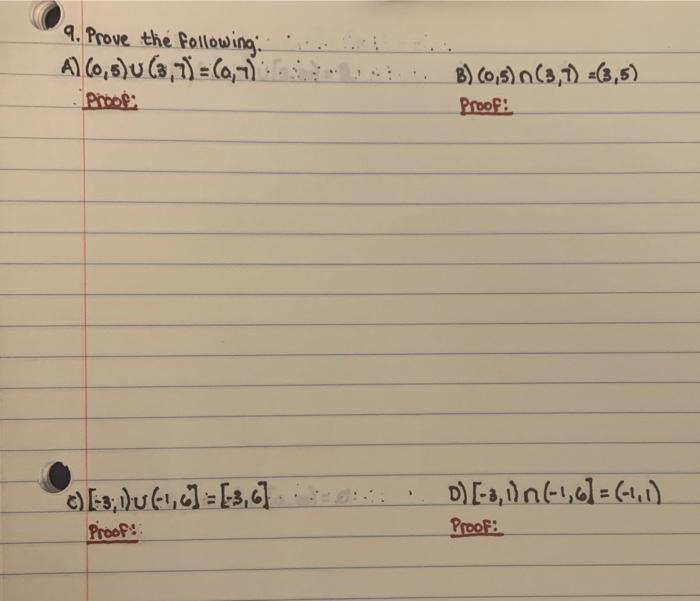 9. Prove the following:
A) (0,5)∪(3,7)=(0,7)
Proof:
B) (0,5)∩(3,7) =(3,5)
Proof:
C) [-3,1)∪(-1,6]=[-3,6]
Proof:
D) [-3,1)∩(-1,6]=(-1,1)
Proof: